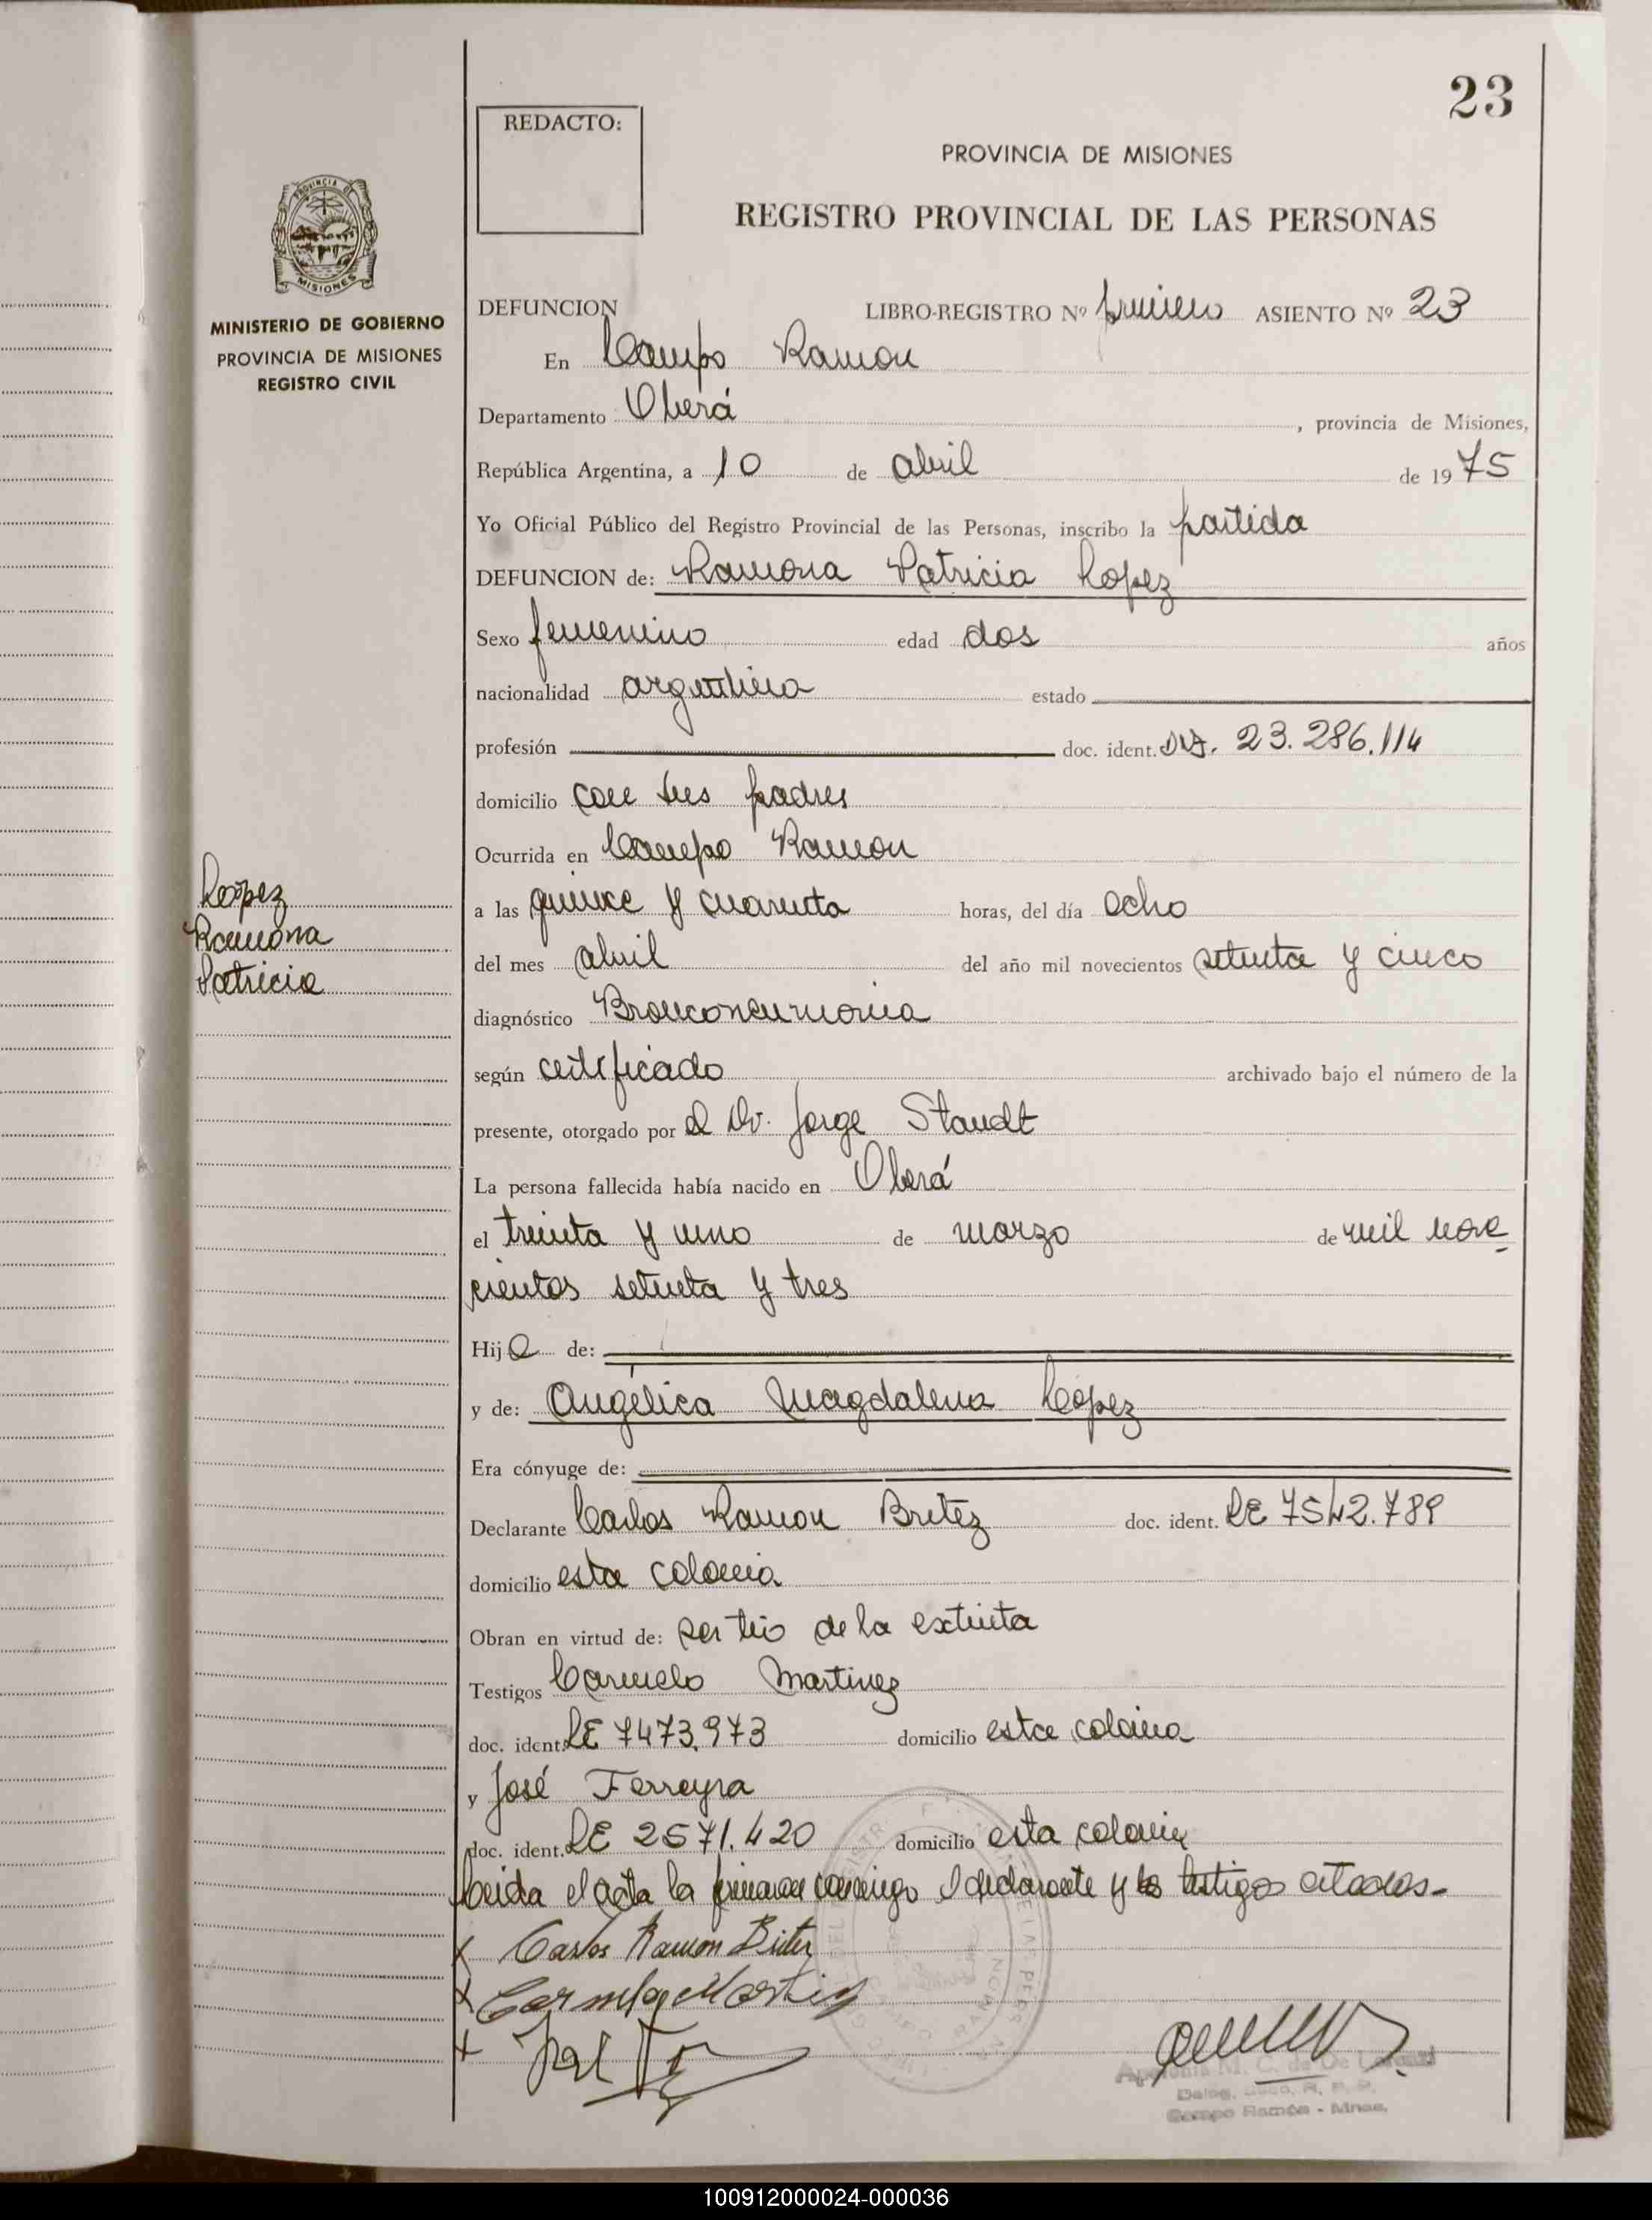 23
REDACTO:
PROVINCIA DE MISIONES
REGISTRO PROVINCIAL DE LAS PERSONAS
PROVINCIA DE
MISIONES
MINISTERIO DE GOBIERNO
PROVINCIA DE MISIONES
REGISTRO CIVIL
DEFUNCION LIBRO-REGISTRO Nº primero ASIENTO Nº 23
En Campo Ramon
Departamento Oberá, provincia de Misiones,
República Argentina, a 10 de abril de 1975
Yo Oficial Público del Registro Provincial de las Personas, inscribo la partida
DEFUNCION de: Ramona Patricia Lopez
Sexo femenino edad dos años
nacionalidad argentina estado
profesión doc. ident. DNI. 23.286.114
domicilio con sus padres
Ocurrida en Campo Ramon
Lopez
Ramona
Patricia
a las quince y cuarenta horas, del día ocho
del mes abril del año mil novecientos setenta y cinco
diagnóstico Bronconeumonia
según certificado archivado bajo el número de la
presente, otorgado por el Dr. Jorge Staudt
La persona fallecida había nacido en Oberá
el treinta y uno de marzo de mil nove
cientos setenta y tres
Hija de:
y de: Angélica Magdalena Lopez
Era cónyuge de:
Declarante Carlos Ramon Britez doc. ident. LE 7542.789
domicilio esta colonia
Obran en virtud de: ser tio de la extinta
Testigos Carmelo Martinez
doc. ident. LE 7473.973 domicilio esta colonia
y José Ferreyra
doc. ident. LE 2571.420 domicilio esta colonia
Leida el acta la firman conmigo el declarante y los testigos citados.-
x Carlos Ramon Britez
x Carmelo Martinez
x
M. C. de De
Campo Ramón - Mnes.
100912000024-000036